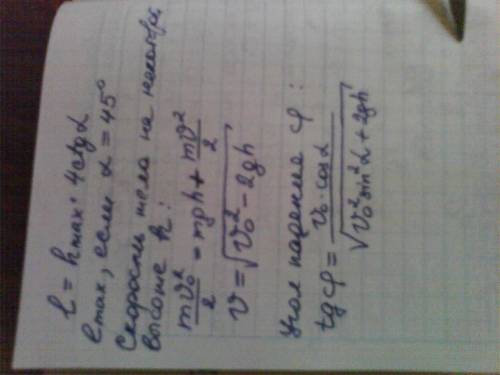 l = hmax · 4ctgα
lmax, если α = 45°
Скорость тела на некотор.
высоте h:
mv₀²/2 = mgh + mv²/2
v = √(v₀² - 2gh)
Угол падение φ:
tgφ = v₀·cosα / √(v₀² sin²α + 2gh)